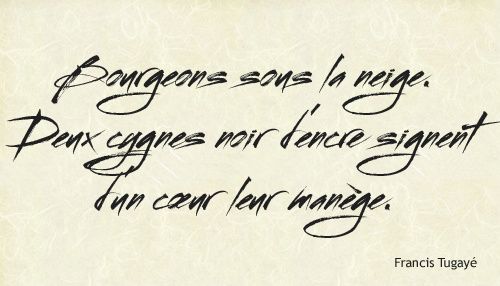 Bourgeons sous la neige.
Deux cygnes noir d'encre signent
d'un cœur leur manège.
Francis Tugayé